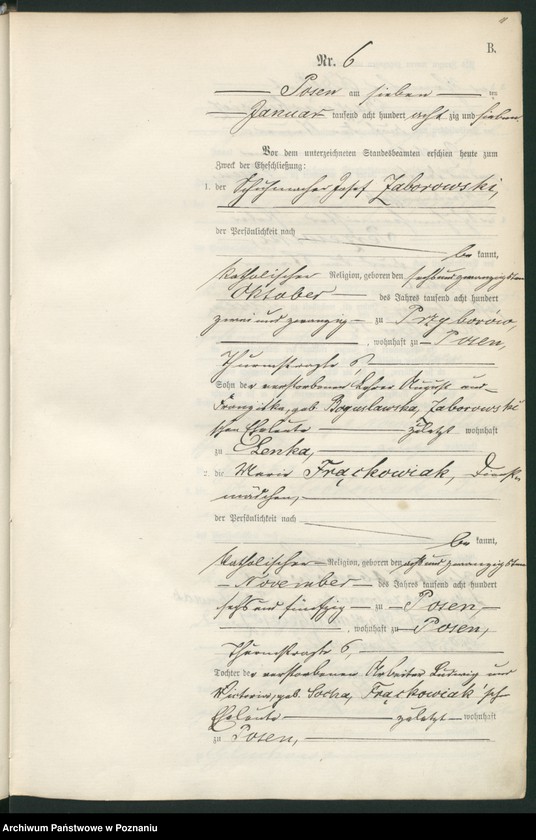 B.
Nr. 6
Posen am sieben ten
Januar tausend acht hundert acht zig und sieben
Vor dem unterzeichneten Standesbeamten erschien heute zum
Zweck der Eheschließung:
1. der Schuhmacher Josef Zaborowski,
der Persönlichkeit nach
be kannt,
katholischer Religion, geboren den sechsundzwanzigsten
Oktober des Jahres tausend acht hundert
zwei und zwanzig zu Przyborowo,
, wohnhaft zu Posen,
Thurmstraße 6,
Sohn der verstorbenen Lehrer August und
Franziska, geb. Boguslawska, Zaborowski
schen Eheleute zuletzt wohnhaft
zu Lenka,
2. die Marie Frąckowiak, Dienst
mädchen,
der Persönlichkeit nach
be kannt,
katholischer Religion, geboren den achtundzwanzigsten
November des Jahres tausend acht hundert
sechs und fünfzig zu Posen,
, wohnhaft zu Posen,
Thurmstraße 6,
Tochter der verstorbenen Arbeiter Ludwig und
Victoria, geb. Socha, Frąckowiak'sch
Eheleute zuletzt wohnhaft
zu Posen,
Archiwum Państwowe w Poznaniu